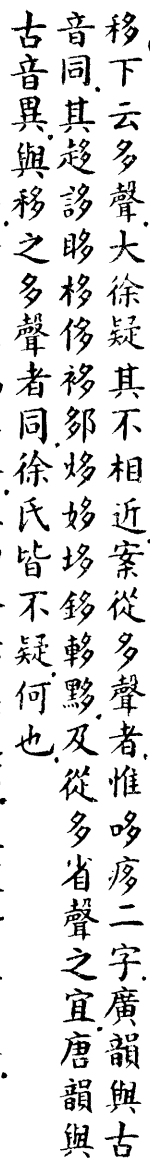 移下云多聲大徐疑其不相近案從多聲者惟哆痑二字廣韻與古
音同其趍誃眵栘侈袳鄒炵姼垑鉹軫黟及從多省聲之宜唐韻與
古音異與移之多聲者同徐氏皆不疑何也